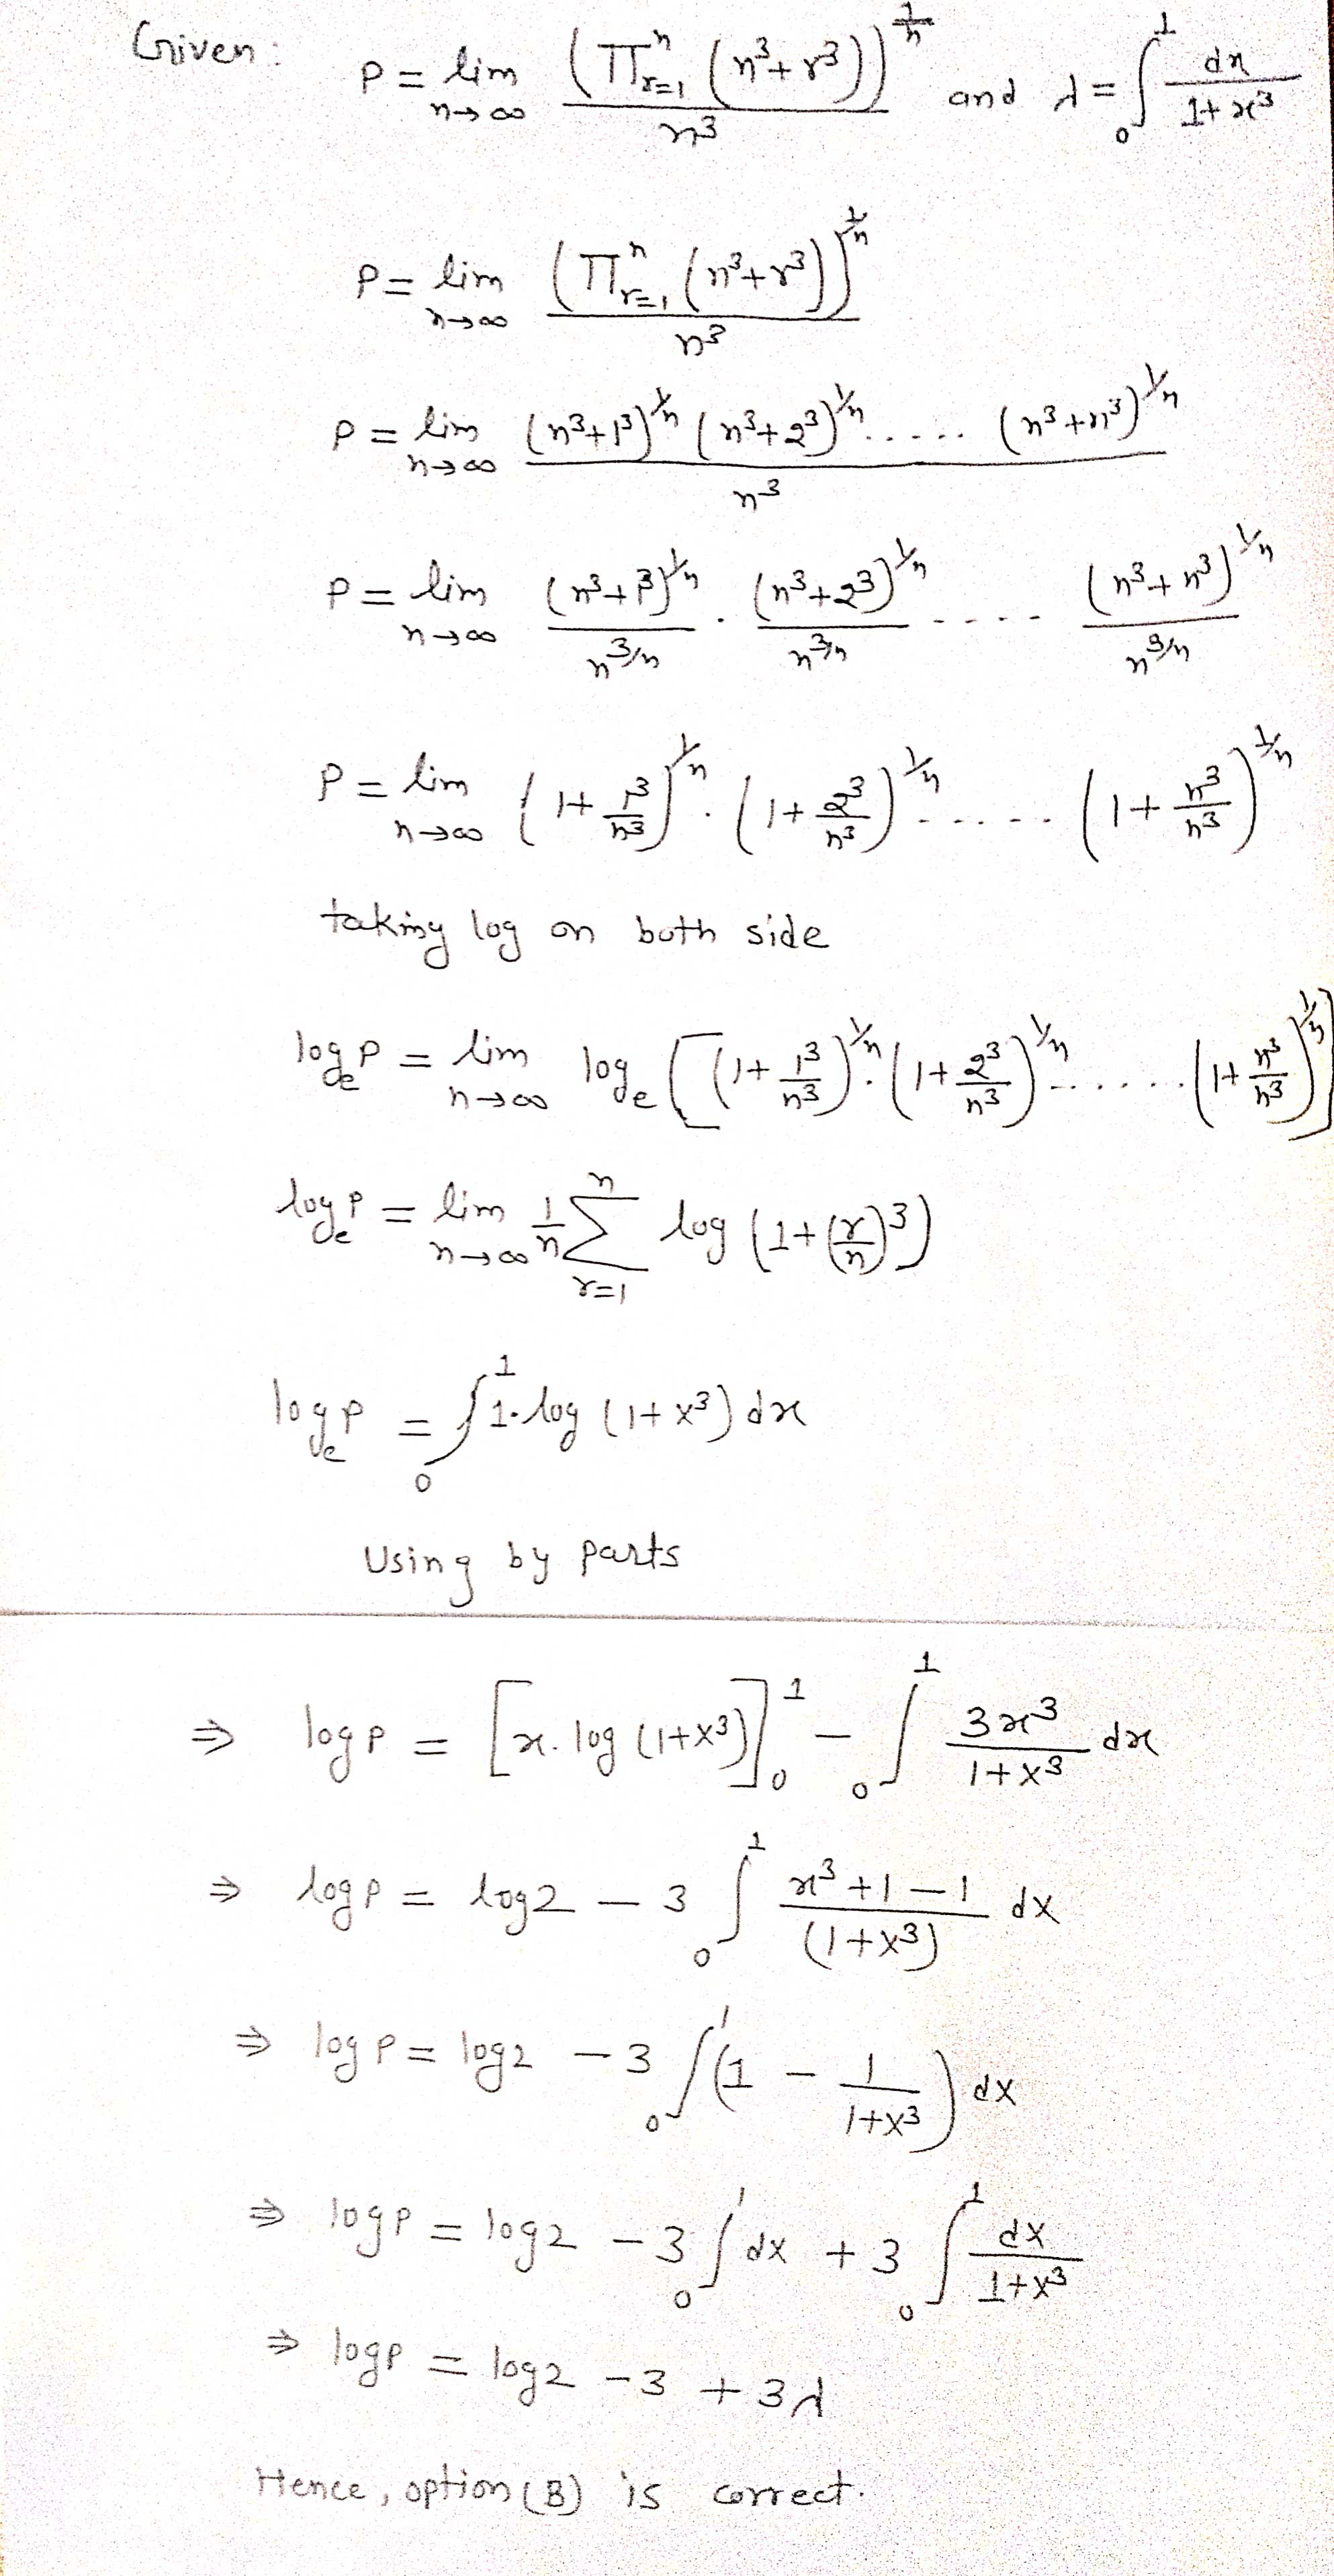 Given: P = lim_{n→∞} (∏_{r=1}^{n} (n³+r³))^{1/n} / n³ and λ = ∫_0^1 dx / 1+x³
P = lim_{n→∞} (∏_{r=1}^{n} (n³+r³))^{1/n} / n³
P = lim_{n→∞} (n³+1³)^{1/n} (n³+2³)^{1/n} ..... (n³+n³)^{1/n} / n³
P = lim_{n→∞} (n³+1³)^{1/n} / n^{3/n} . (n³+2³)^{1/n} / n^{3/n} .... (n³+n³)^{1/n} / n^{3/n}
P = lim_{n→∞} (1+ 1³/n³)^{1/n} . (1+ 2³/n³)^{1/n} ..... (1+ n³/n³)^{1/n}
taking log on both side
log_e P = lim_{n→∞} log_e [(1+ 1³/n³)^{1/n} . (1+ 2³/n³)^{1/n} ...... (1+ n³/n³)^{1/n}]
log_e P = lim_{n→∞} 1/n ∑_{r=1}^{n} log (1+(r/n)³)
log_e P = ∫_0^1 1.log (1+x³) dx
Using by parts
⇒ log P = [x. log (1+x³)]_0^1 − ∫_0^1 3x³ / 1+x³ dx
⇒ log P = log2 − 3 ∫_0^1 x³+1−1 / (1+x³) dx
⇒ log P = log2 − 3 ∫_0^1 (1 − 1 / 1+x³) dx
⇒ log P = log2 − 3 ∫_0^1 dx + 3 ∫_0^1 dx / 1+x³
⇒ log P = log2 − 3 + 3λ
Hence, option (B) is correct.